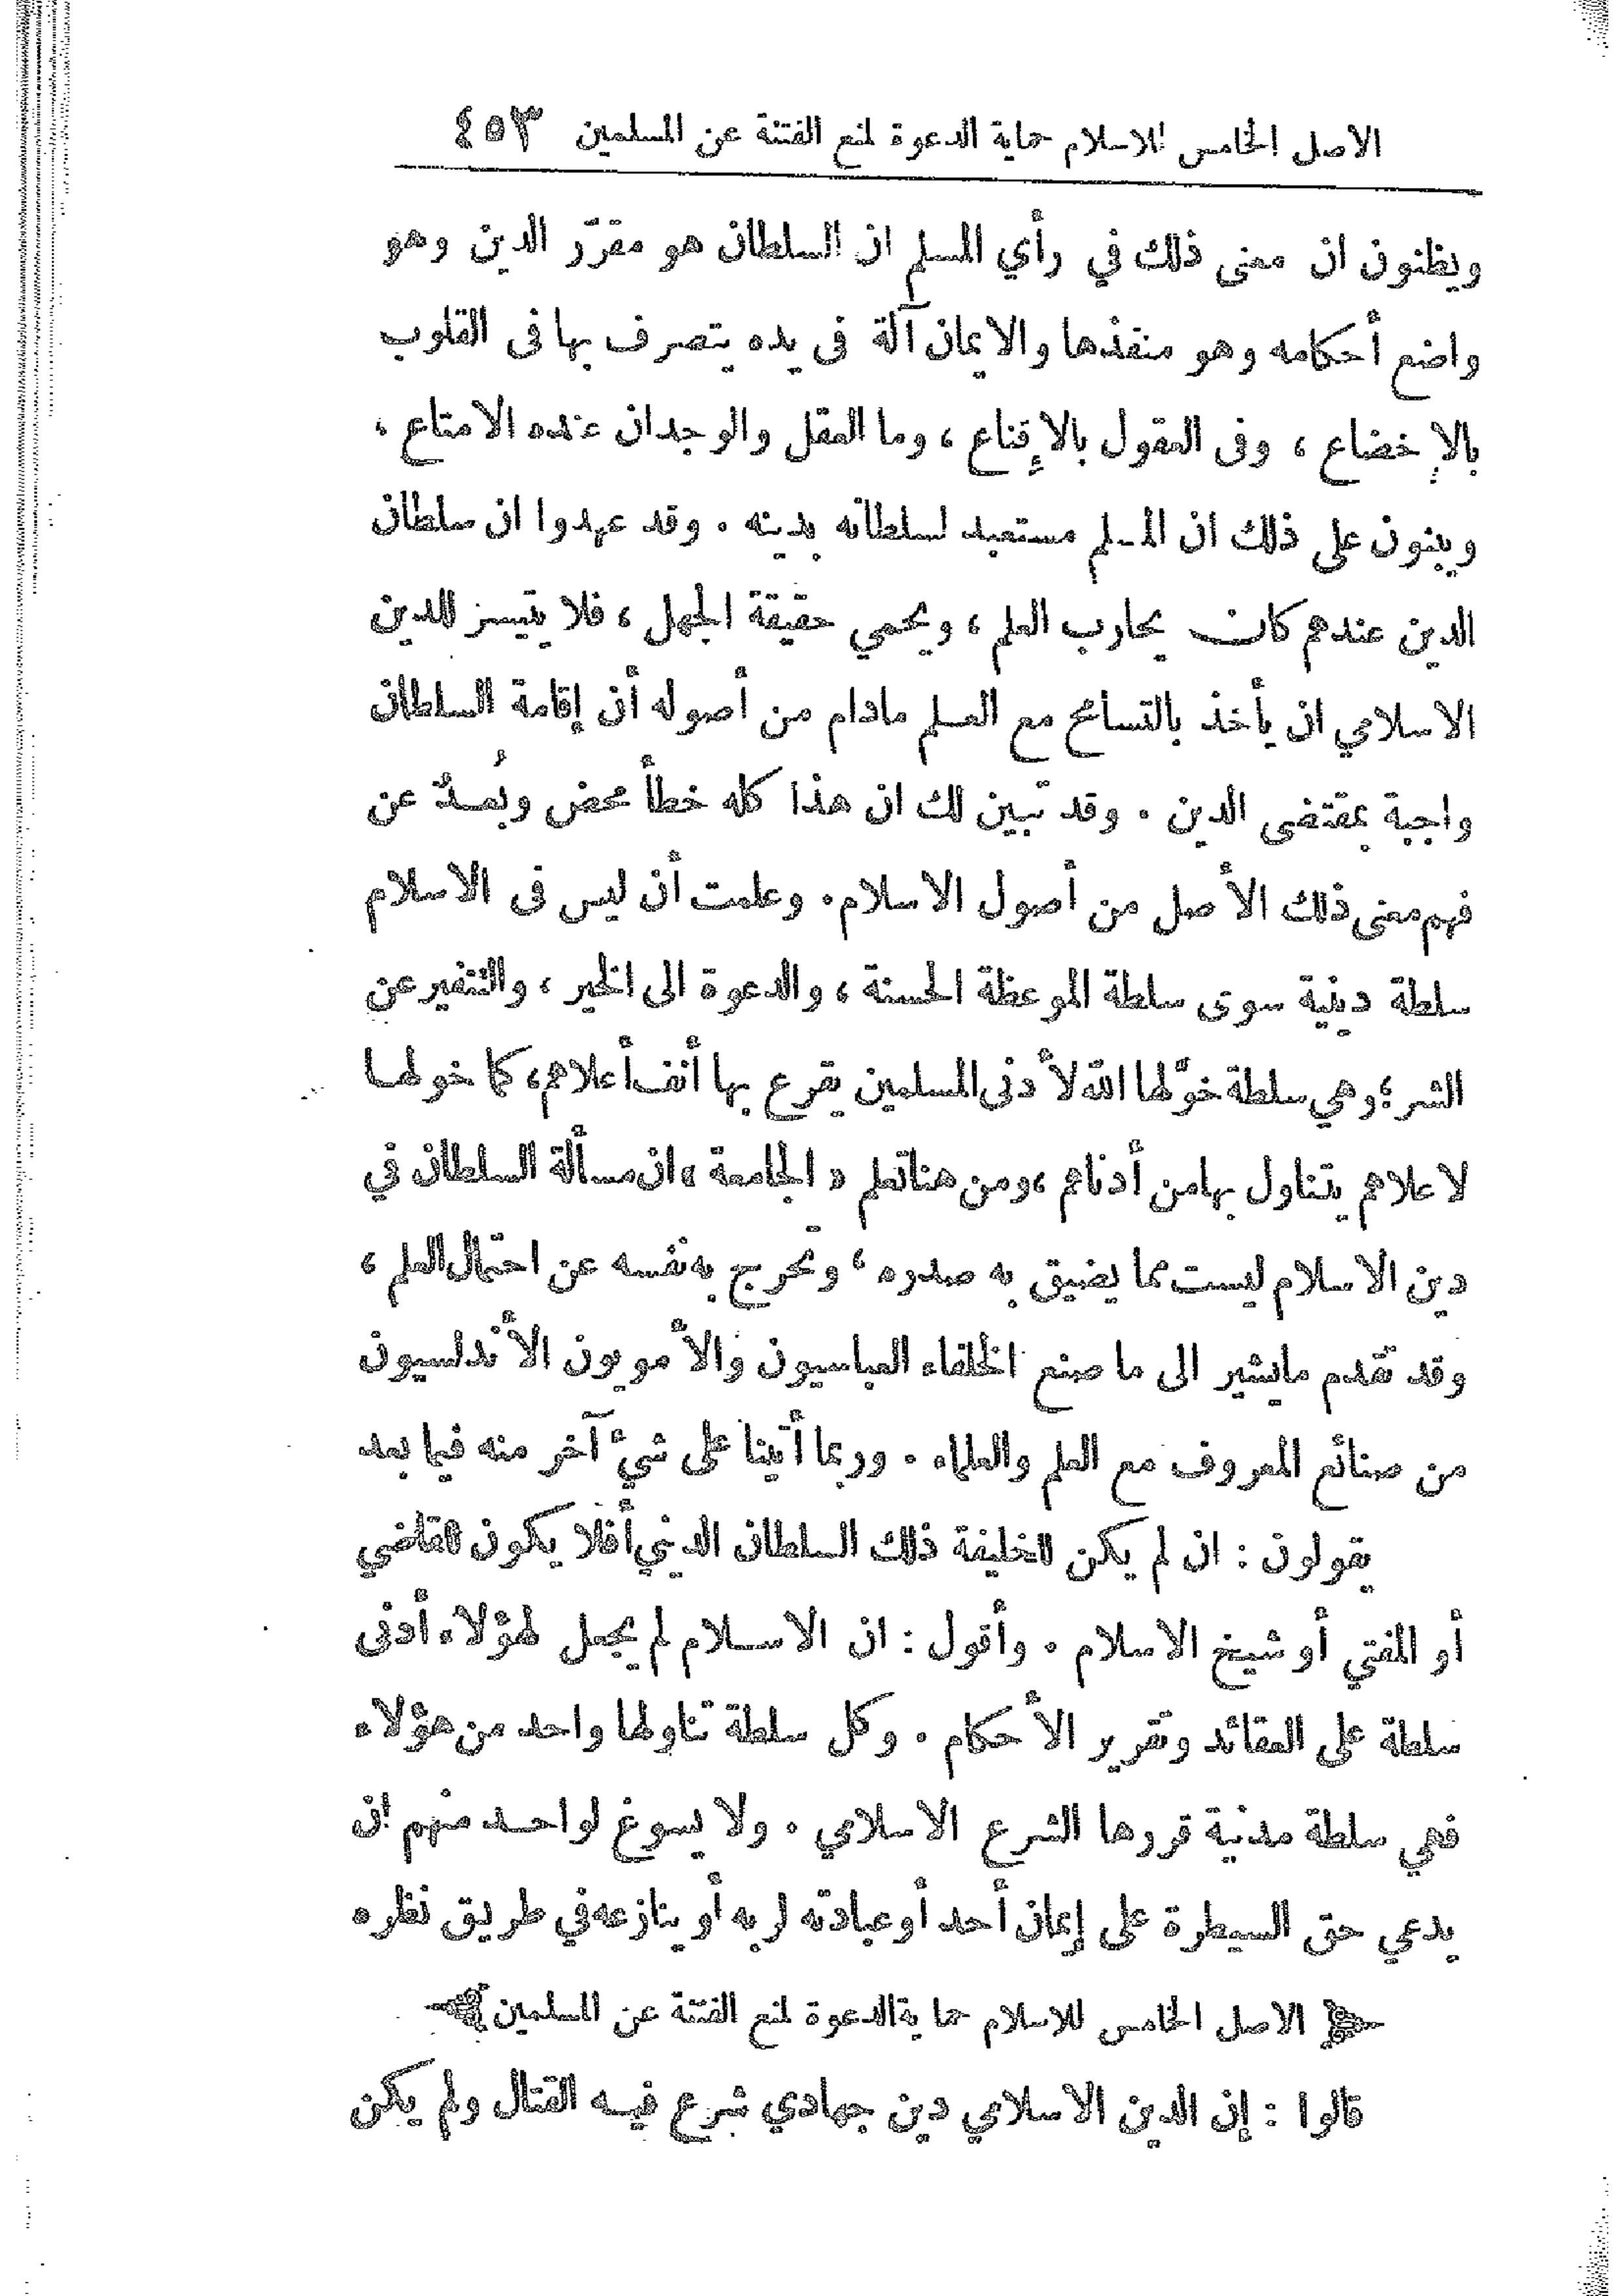 الاصل الخامس للاسلام حماية الدعوة لمنع الفتنة عن المسلمين ٤٥٣
ويظنون ان معنى ذلك في رأي المسلم ان السلطان هو مقرّر الدين وهو
واضع أحكامه وهو منفذها والايمان آلة فى يده يتصرف بها فى القلوب
بالإخضاع ، وفى العقول بالإقناع ، وما العقل والوجدان عنده الا متاع ،
ويبنون على ذلك ان المسلم مستعبد لسلطانه بدينه . وقد عهدوا ان سلطان
الدين عندهم كان يحارب العلم ، ويحمي حقيقة الجهل ، فلا يتيسر للدين
الاسلامي ان يأخذ بالتسامح مع العلم مادام من أصوله أن إقامة السلطان
واجبة بمقتضى الدين . وقد تبين لك ان هذا كله خطأ محض وبُعدٌ عن
فهم معنى ذلك الأصل من أصول الاسلام . وعلمت أن ليس فى الاسلام
سلطة دينية سوى سلطة الموعظة الحسنة ، والدعوة الى الخير ، والتنفير عن
الشر ؛ وهي سلطة خوّلها الله لأدنى المسلمين يقرع بها أنف أعلاهم ، كما خولها
لاعلاهم يتناول بها من أدناهم ، ومن هنا تعلم « الجامعة » ان مسألة السلطان في
دين الاسلام ليست مما يضيق به صدره ، وتحرج به نفسه عن احتمال العلم ،
وقد تقدم مايشير الى ما صنع الخلفاء العباسيون والأمويون الأندلسيون
من صنائع المعروف مع العلم والعلماء . وربما أتينا على شيءٍ آخر منه فيما بعد
يقولون : ان لم يكن للخليفة ذلك السلطان الديني أفلا يكون للقاضي
أو المفتي أو شيخ الاسلام . وأقول : ان الاسلام لم يجعل لهؤلاء أدنى
سلطة على العقائد وتقرير الأحكام . وكل سلطة تناولها واحد من هؤلاء
فهي سلطة مدنية قررها الشرع الاسلامي . ولا يسوغ لواحد منهم ان
يدعي حق السيطرة على إيمان أحد أو عبادته لربه أو ينازعه في طريق نظره
الاصل الخامس للاسلام حماية الدعوة لمنع الفتنة عن المسلمين
قالوا : إن الدين الاسلامي دين جهادي شرع فيه القتال ولم يكن